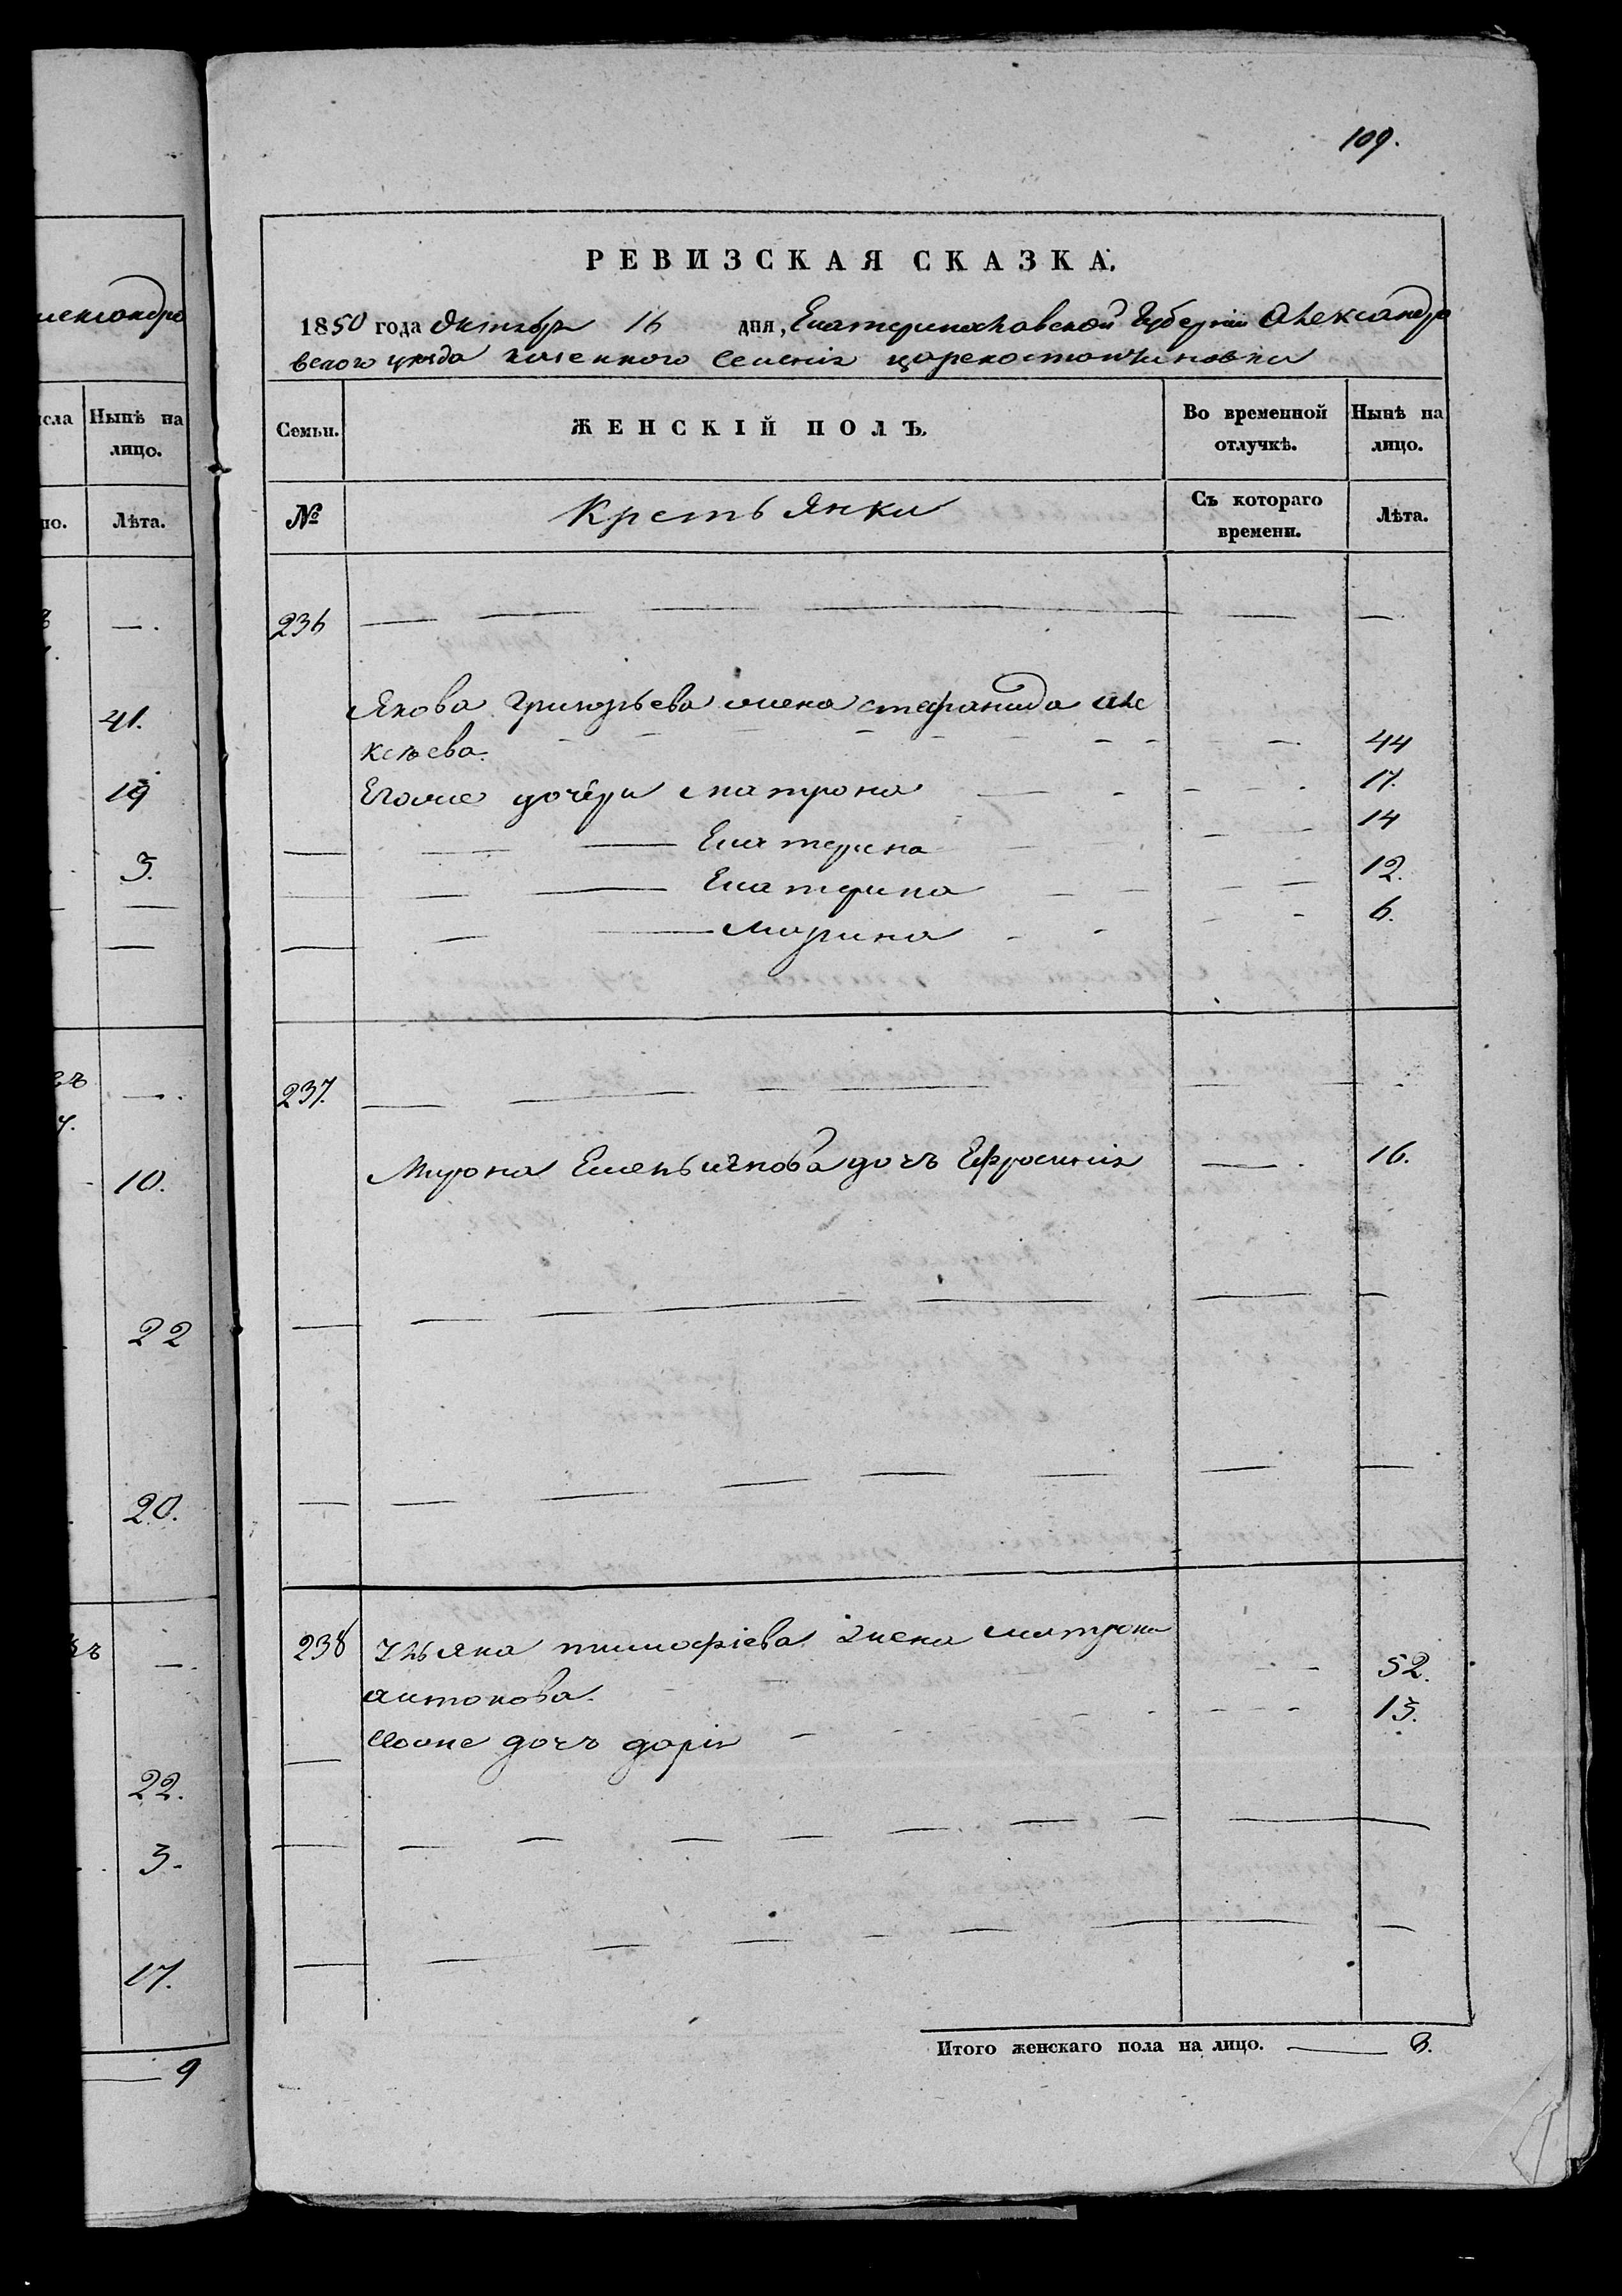 109.
РЕВИЗСКАЯ СКАЗКА.
1850 года Октября 16 дня, Екатеринославской Губерніи Александро
вского уезда казенного селенія Царекостантиновки
Семьи. ЖЕНСКІЙ ПОЛЪ. Во временной отлучкѣ. Нынѣ на лицо.
№ Крестьянки Съ котораго времени. Лѣта.
236
Якова Григорьева жена стефанида але
ксѣева. 44
Егоже дочери матрона 17.
Екатерина 14
Екатерина 12.
Марина 6.
237.
Мирона Емельянова дочь Ефросинія 16.
238 Ульяна тимофіева жена матрона
антонова. 52.
Егоже дочь дарія 13.
Итого женскаго пола на лицо. 8.
лександро
исла Нынѣ на
лицо.
но. Лѣта.
41.
19
3.
10.
22
20.
22.
3.
17.
9